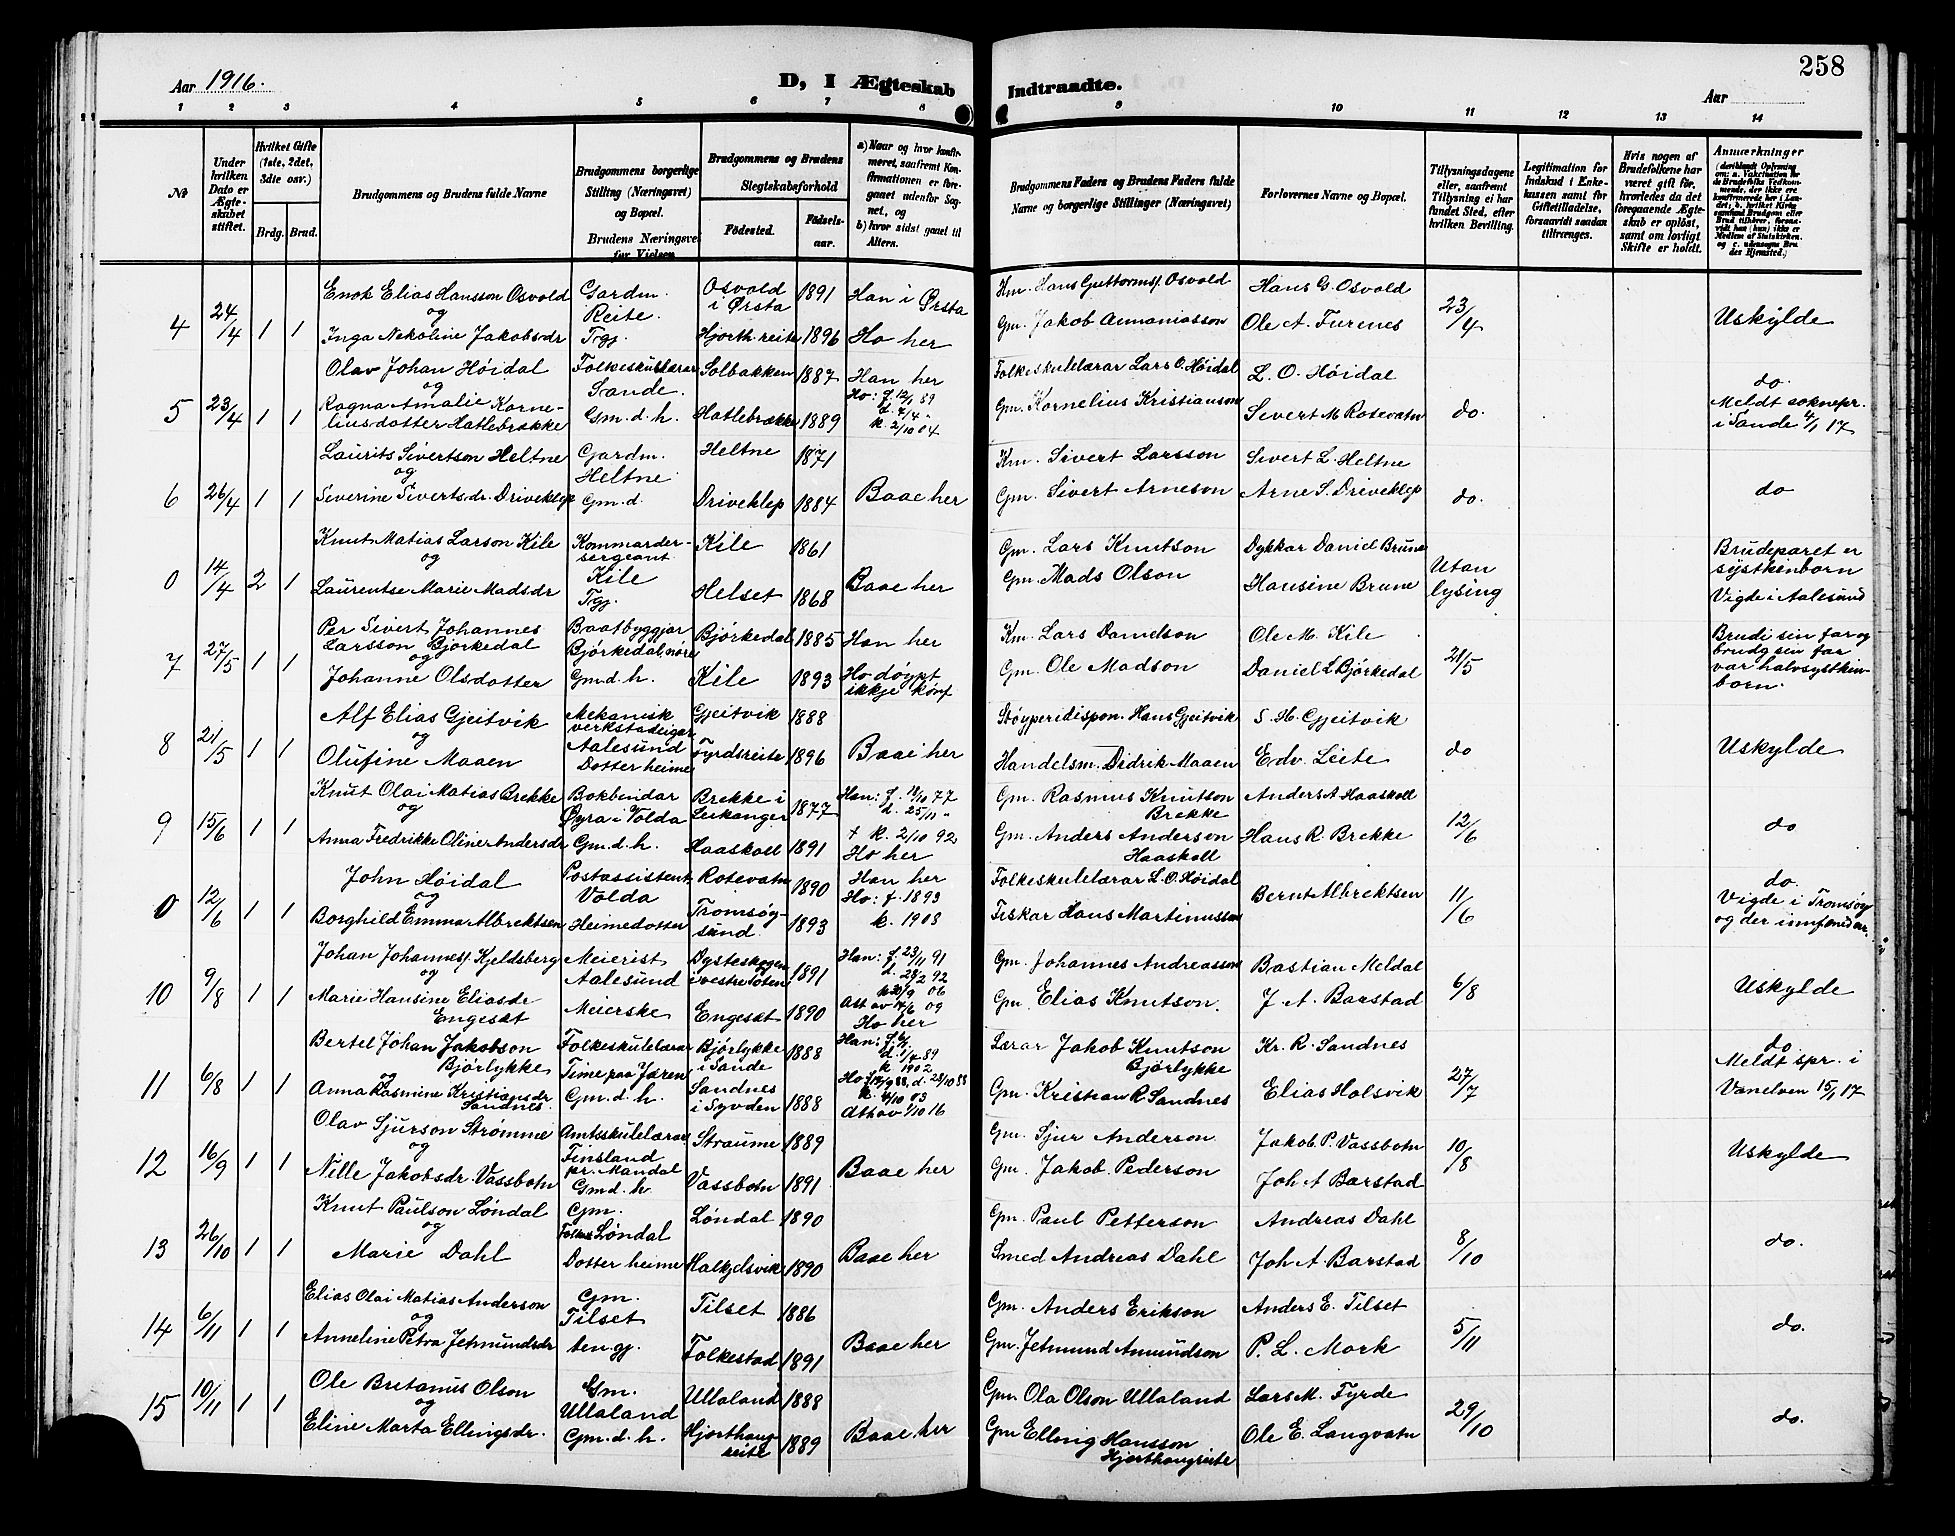 258
Aar 1916.
D, I Ægteskab Indtraadte.
Aar
1 2 3 4 5 6 7 8 9 10 11 12 13 14
№
Under hvilken Dato er Ægteskabet stiftet.
Hvilket Gifte (1ste, 2det, 3die osv.)
Brdg. Brud.
Brudgommens og Brudens fulde Navne
Brudgommens borgerlige Stilling (Næringsvei) og Bopæl.
Brudens Næringsvei før Vielsen
Brudgommens og Brudens Slegtskabsforhold
Fødested. Fødselsaar.
a) Naar og hvor konfirmeret, saafremt Konfirmationen er foregaaet udenfor Sognet, og
b) hvor sidst gaaet til Alters.
Brudgommens Faders og Brudens Faders fulde Navne og borgerlige Stillinger (Næringsvei)
Forlovernes Navne og Bopæl.
Tillysningsdagene eller, saafremt Tillysning ei har fundet Sted, efter hvilken Bevilling.
Legitimation for Indskud i Enkekassen samt for Giftetilladelse, forsaavidt saadan tiltrænges.
Hvis nogen af Brudefolkene har været gift før, hvorledes da det foregaaende Ægteskab er opløst, samt om lovligt Skifte er holdt.
Anmærkninger
4 24/4 1 1 Enok Elias Hansson Osvold Gardm. Reite. Osvold i Ørsta 1891 Han i Ørsta Km. Hans Guttormsf. Osvold Hans G. Osvold 23/4 Uskylde
og
Inga Nekoline Jakobsdr Trgj. Hjorth.reite 1896 Ho her Gm. Jakob Annaniasson Ole A. Furenes
5 23/4 1 1 Olav Johan Høidal Folkeskulelærar Sande. Solbakken 1887 Han her Folkeskulelærar Lars O. Høidal L. O. Høidal do. do. Meldt soknepr. i Sande 4/1 17
og
Ragna Amalie Korneliusdotter Hatlebrække Gm. d. h. Hatlebrække 1889 Ho: f 12/1 89 d. 7/4 " k. 2/10 04 Gm. Kornelius Kristianson Sivert M. Rotevatn
6 26/4 1 1 Laurits Sivertson Heltne Gardm. Heltne Heltne 1871 Baae her Km. Sivert Larsson Sivert L. Heltne do. do
og
Severine Sivertsdr. Driveklep Gm. d. Driveklep 1884 Gm. Sivert Arneson Arne S. Driveklep
0 14/4 2 1 Knut Matias Larson Kile Kommandersergeant Kile Kile 1861 Baae her Gm. Lars Knutson Dykkar Daniel Brune Utan lysing Brudeparet er systkenborn Vigde i Aalesund
og
Laurentse Marie Madsdr Trgj. Helset 1868 Gm. Mads Olson Hansine Brune
7 27/5 1 1 Per Sivert Johannes Larsson Bjørkedal Baatbyggjar Bjørkedal, nøre Bjørkedal 1885 Han her Km. Lars Danielson Ole M. Kile 21/5 Brudi sin far og brudg sin far var halvsystkinborn.
og
Johanne Olsdotter Gm. d. h. Kile 1893 Ho døypt ikkje konf Gm. Ole Madson Daniel L Bjørkedal
8 21/5 1 1 Alf Elias Gjeitvik Mekanisk verkstadeigar Aalesund Gjeitvik 1888 Baae her Støyperidispon. Hans Gjeitvik S. H. Gjeitvik do Uskylde
og
Olufine Maaen Dotter heime Fyrdsreite 1896 Handelsm. Didrik Maaen Edv. Leite
9 15/6 1 1 Knut Olai Matias Brekke Bokbindar Øyra i Volda Brekke i Leikanger 1877 Han: f. 12/10 77 d. 25/11 " + k. 2/10 92 Gm. Rasmus Knutson Brekke Anders A Haaskoll 12/6 do
og
Anna Fredrikke Oline Andersdr Gm. d. h. Haaskoll 1891 Ho her Gm. Anders Anderson Haaskoll Hans R. Brekke
0 12/6 1 1 John Høidal Postassistent, Volda Rotevatn 1890 Han her Folkeskulelærar L. O. Høidal Bernt Albrektsen 11/6 do. Vigde i Tromsøy og der innførd
og
Borghild Emma Albrektsen Heimedotter Tromsøysund 1893 Ho: f. 1893 k. 1908 Fiskar Hans Martinussen
10 9/8 1 1 Johan Johannesf. Kjeldsberg Meierist Aalesund Dysteskogen i vestre Toten 1891 Han: f. 23/11 91 d. 28/2 92 k 30/9 06 Att av 14/6 09 Gm. Johannes Andreasson Bastian Meldal 6/8 Uskylde
og
Marie Hansine Eliasdr Engeset Meierske Engeset 1890 Ho her Gm. Elias Knutson. J A. Barstad
11 6/8 1 1 Bertel Johan Jakobson Bjørlykke Folkeskulelærar Time paa Jæren Bjørlykke i Sande 1888 Han: d. 1/4 89 k 1902 Lærar Jakob Knutson Bjørlykke Kr. R. Sandnes 27/7 do Meldt spr. i Vanelven 15/1 17
og
Anna Rasmine Kristiansdr Sandnes. Gm. d. h. Sandnes i Syvden 1888 Ho f 12/9 88, d. 28/10 88 k. 4/10 03 Athav 1/10 16 Gm. Kristian R. Sandnes Elias Holsvik
12 16/9 1 1 Olav Sjurson Strømme Amtsskulelærar Finsland pr. Mandal Straume 1889 Baae her Gm. Sjur Anderson Jakob P. Vassbotn 10/8 Uskylde
og
Nille Jakobsdr. Vassbotn Gm. d. h. Vassbotn 1891 Gm. Jakob Pederson Joh A Barstad
13 26/10 1 1 Knut Paulson Løndal Gm. Løndal Løndal 1890 Baae her Gm. Paul Petterson Andreas Dahl 8/10 do.
og
Marie Dahl Dotter heime Halkjelsvik 1890 Smed Andreas Dahl Joh A Barstad
14 6/11 1 1 Elias Olai Matias Anderson Gm. Tilset Tilset 1886 Baae her Gm. Anders Erikson Anders E. Tilset 5/11 do.
og
Anneline Petra Jetmundsdr ten.gj. Folkestad 1891 Gm. Jetmund Amundson P. L. Mork
15 10/11 1 1 Ole Bretanus Olson Gm. Ullaland Ullaland 1888 Baae her Gm. Ola Olson Ullaland Lars M. Fyrde 29/10 do.
og
Eline Marta Ellingsdr. Gm. d. h. Hjorthaugreite 1889 Gm Elling Hansson Hjorthaugreite Ole E. Langvatn